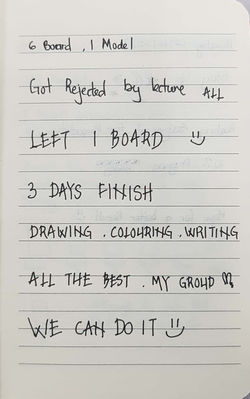 6 Board , 1 Model
Got Rejected by lecture ALL
LEFT 1 BOARD :)
3 DAYS FINISH
DRAWING . COLOURING . WRITING
ALL THE BEST . MY GROUP
WE CAN DO IT :)